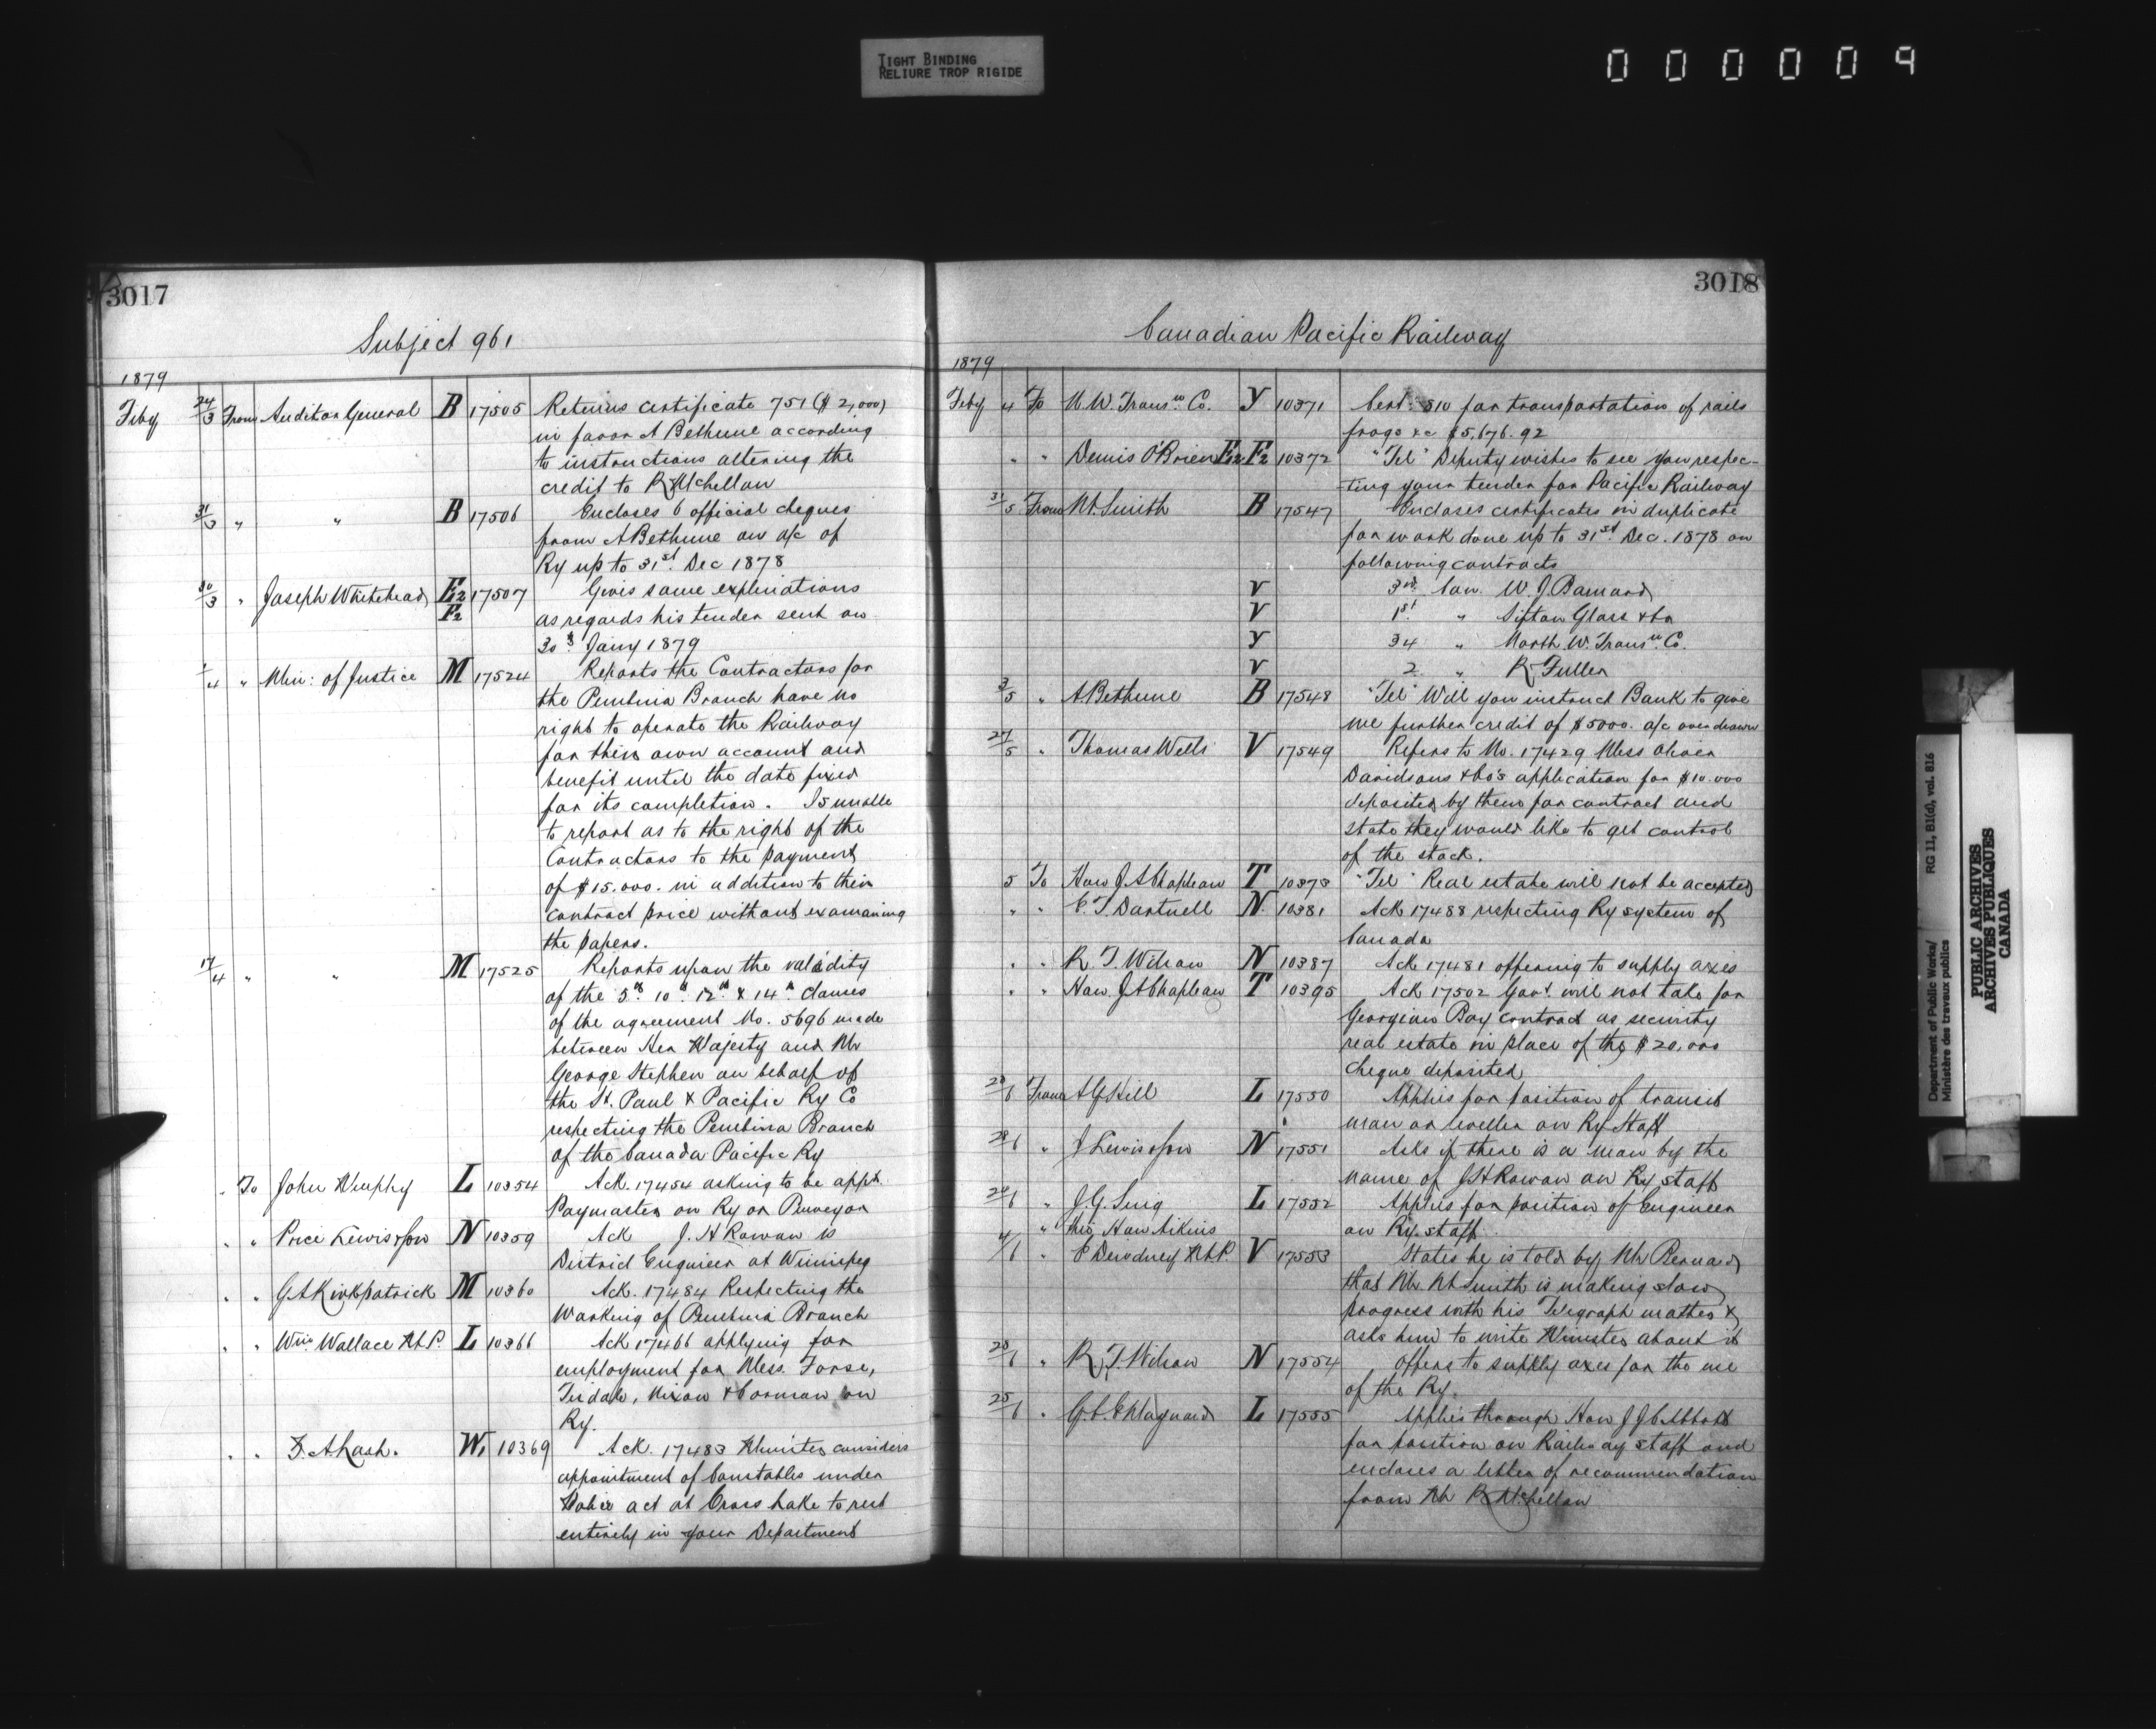 TIGHT BINDING
RELIURE TROP RIGIDE
000009
3017
Subject 961
1879
Feby 24/3 From Auditor General B 17505 Returns certificate 751 ($2,000)
in favor A Bethune according
to instructions altering the
credit to R McLellan
31/3 " " B 17506 Encloses 6 official cheques
from A Bethune on a/c of
Ry up to 31st Dec 1878
30/3 " Joseph Whitehead E2 17507 Gives some explinations
F2 as regards his tender sent on
30th Jany 1879
1/4 " Min: of Justice M 17524 Reports the Contractors for
the Pembina Branch have no
right to operate the Railway
for their own account and
benefit until the date fixed
for its completion. Is unable
to report as to the right of the
Contractors to the payment
of $15.000. in addition to their
contract price without examaning
the papers.
17/4 " " M 17525 Reports upon the validity
of the 5th 10th 12th & 14th clauses
of the agreement No. 5696 made
between Her Majesty and Mr
George Stephen on behalf of
the St. Paul & Pacific Ry Co
respecting the Pembina Branch
of the Canada Pacific Ry
" To John Murphy L 10354 Ack. 17454 asking to be appt.
Paymaster on Ry or Purveyor
" " Price Lewis & Son N 10359 Ack J. H Rowan is
District Engineer at Winnipeg
" " G A Kirkpatrick M 10360 Ack. 17484 Respecting the
Working of Pembina Branch
" " Wm. Wallace M.P. L 10366 Ack 17466 applying for
employment for Mess. Forse,
Tisdale, Nixon & Corman on
Ry.
" " Z. A. Lash. W1 10369 Ack. 17483 Minister considers
appointment of Constables under
Police act at Cross Lake to rest
entirely in your Department
3018
Canadian Pacific Railway
1879
Feby 4 To N. W. Transn. Co. Y 10371 Cert: 810 for transportation of rails
frogs &c $5,676.92
" " Denis O'Brien E2 F2 10372 "Tel" Deputy wishes to see you respec-
-ting your tender for Pacific Railway
31/5 From M. Smith B 17547 Encloses certificates in duplicate
for work done up to 31st Dec. 1878 on
following contracts
V 3rd Con. W. J. Barnard
V 1st " Sifton Glass & Co
Y 34 " North W. Transn. Co.
V 2 " R Fuller
3/5 " A. Bethune B 17548 "Tel" Will you instruct Bank to give
me further credit of $5000. a/c overdrawn
27/5 " Thomas Wells V 17549 Refers to No. 17429 Mess Oliver
Davidsons & Co's application for $10.000
deposited by them for contract and
state they would like to get control
of the stock.
5 To Hon J A Chapleau T 10373 "Tel" Real estate will not be accepted
" " E. T. Dartnell N. 10381 Ack 17488 respecting Ry system of
Canada
" " R. T. Wilson N 10387 Ack 17481 offering to supply axes
" " Hon. J A Chapleau T 10395 Ack 17502 Govt. will not take for
Georgian Bay contract as security
real estate in place of the $20,000
cheque deposited
28/6 From A G Hill L 17550 Applies for position of transit
man or leveller on Ry Staff
28/6 " J Lewis & Son N 17551 Asks if there is a man by the
name of J H Rowan on Ry staff
24/6 " J. G. Suig L 17552 Applies for position of Engineer
" thro Hon Aikins on Ry. staff
4/6 " E Dewdney M.P. V 17553 States he is told by Mr Bernard
that Mr. M Smith is making slow
progress with his Telegraph matter &
asks him to write Minister about it
28/6 " R. T. Wilson N 17554 Offers to supply axes for the use
of the Ry.
25/6 " G. C. E Maynard L 17555 Applies through Hon J J C Abbott
for position on Railway staff and
encloses a letter of recommendation
from Mr R McLellan
Department of Public Works/ RG 11, B1(d), vol. 816
Ministère des travaux publics
PUBLIC ARCHIVES
ARCHIVES PUBLIQUES
CANADA